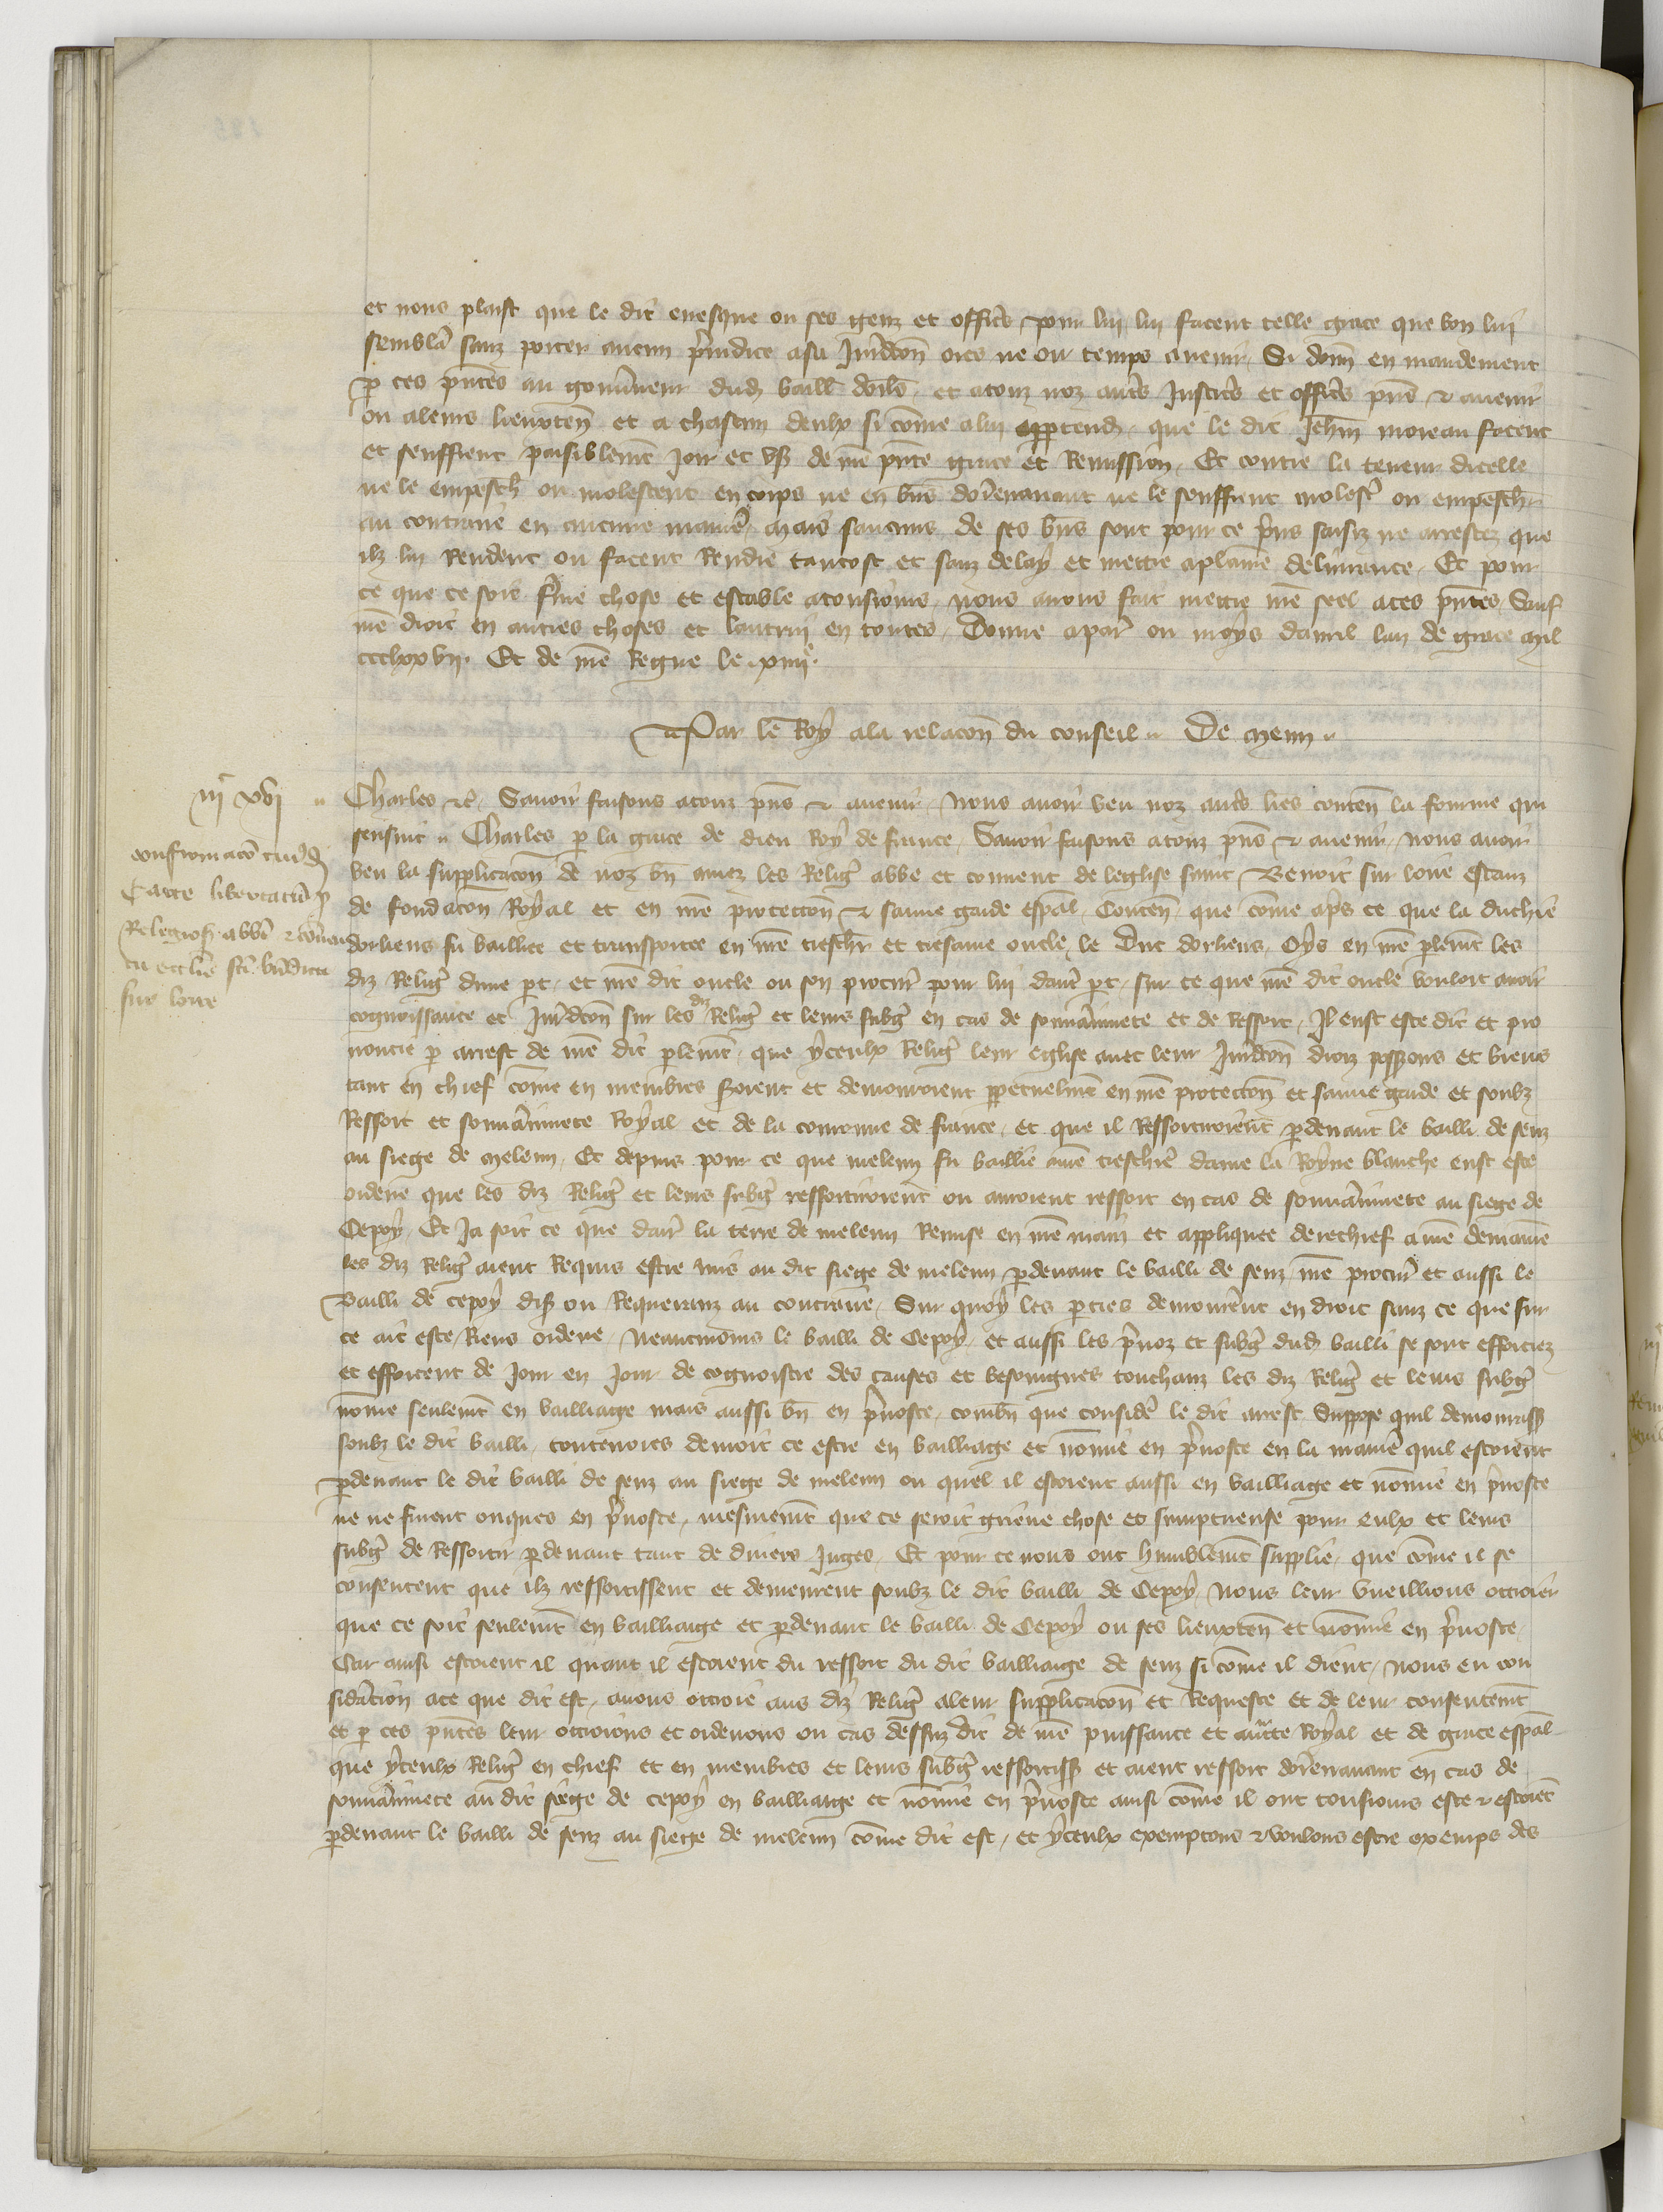 et nous plaist que le dit evesque ou ses genz et offic̃s pour lui lui facent telle grace que bon lui
semblã sanz porter aucun p̃iudice a sa Juridcoñ ores ne ou temps avenir. Si doñs en mandement
p ces p̃ntes au gouv̾neur dud baill doñs et a touz noz aut̾s Justic̾s et offic̾s p̃ns & avenir
ou a leurs lieuxteñ et a chascun deulx si cõme a lui appartendr̃ que le dit Jehñ moreau facent
et seuffrent paisiblem̃t Joir et us̾ de n̾re p̃nte grace et Remission. Et contre la teneur dicelle
ne le empesch̾ ou molestent en corps ne en bñs dores en avant ne le seuffrent molest̾ ou empesch̾
au contraire en aucune maniẽ. mais saucuns de ses bñs sont pour ce p̃ns saisiz ne arrestez que
ilz lui Rendent ou facent Rendre tantost et sanz delay et mettre a plaine delivrance. Et pour
ce que ce soit f̃me chose et estable a tousiours. nous avons fait mettre n̾re seel a ces p̃ntes. Sauf
n̾re droit en autres choses et lautrui en toutes. Donne a par̾ ou moys davril lan de grace mil
ccclxxvii. Et de n̾re Regne le xiiii.e
Par le Roy a la relacõn du conseil .. De meun ..
iijc xvi
Charles &c̃. Savoir faisons a touz p̃ns & avenir. Nous avoir veu noz aut̾s l̾res conteñ la fourme qui
sensuit .. Charles p la grace de dieu Roy de france. Savoir faisons a touz p̃ns & avenir. nous avoir
confirmacõ cui͗dã
Carte libertatũ p
Religios̾ abb̾i & cõven
tu eccl̾ie s̃ti bñdicti
sur loire
veu la supplicacõn de noz bñ amez les Relig̾ abbe et couvent de leglise saint Benoit sur loire estanz
de fondacõn Royal et en n̾re proteccõn & sauve garde esp̃al. Conteñ que cõme ap̾s ce que la duchie
dorliens fu baillee et transportee en n̾re tresch̾r et tresame oncle le Duc dorliens. Oys en n̾re p̃lem̃t les
diz Relig̾ dune p̃t. et n̾re dit oncle ou son procur̾ pour lui daut̾ p̃t. sur ce que n̾re dit oncle vouloit avoir
cognoissance et Juridcõn sur les diz Relig̾ et leurs subg̾ en cas de souṽainnete et de Ressort. Il eust este dit et pro
noncie p arrest de n̾re dit p̃lem̃t. que yceulx Relig̾ leur eglise avec leur Juridcõn droiz possessions et biens
tant en chief cõme en membres seroient et demourroient p̃petuelm̃t en n̾re proteccõn et sauve garde et soubz
Ressort et souṽainnete Royal et de la couronne de france. et que il Ressortiroient p̃devant le bailli de senz
au siege de meleun. Et depuis pour ce que meleun fu baillie a n̾re treschie̾ dame la Royne blanche eust este
ordene que les diz Relig̾ et leurs subg̾ ressortiroient ou auroient ressort en cas de souṽainnete au siege de
Cepoy. Et Ja soit ce que dar̾ la terre de meleun Remise en n̾re main et appliquee derechief a n̾re demaine
les diz Relig̾ aient Requis estre mis au dit siege de meleun p̃devant le bailli de senz. n̾re procur̾ et aussi le
Bailli de cepoy dis̾ ou Requeranz au contraire. Sur quoy les p̃ties demour̾ent en droit sanz ce que sur
ce ait este Riens ordene. Neantmoins le bailli de Cepoy. et aussi les p̾voz et subg̾ dud bailli se sont efforciez
et efforcent de Jour en Jour de cognoistre des causes et besoingnes touchanz les diz Relig̾ et leurs subg̾
nõmie seulem̃t en bailliage mais aussi bñ en p̾voste. combñ que consider̾ le dit arrest. Suppose quil demouriss̾
soubz le dit bailli. toutevoies devroit ce estre en bailliage et nõmie en p̾voste en la manie̾ quil estoient
p̃devant le dit bailli de senz au siege de meleun ou quel il estoient aussi en bailliage et nõmie en p̾voste
ne ne furent onques en p̾voste. mesmem̃t que ce seroit grieve chose et sumptueuse pour eulx et leurs
subg̾ de Ressortir p̃devant tant de divers Juges. Et pour ce nous ont humblem̃t supplie. que cõme il se
consentent que ilz ressortissent et demeurent soubz le dit bailli de Cepoy. Nous leur vueillions ottroier
que ce soit seulem̃t en bailliaige et p̃devant le bailli de Cepoy ou ses lieuxteñ et nõmie en p̾voste.
Car ainsi estoient il quant il estoient du ressort du dit bailliaige de senz si cõme il dient. Nous eu con
sidãcion a ce que dit est. avons ottroie aus diz Relig̾ a leur supplicacõn et Requeste et de leur consentem̃t
et p ces p̃ntes leur ottroions et ordenons ou cas dessuz dit de n̾re puissance et auc̾te Royal et de grace esp̃al
que yceulx Relig̾ en chief et en membres et leurs subg̾ ressortiss̾ et aient ressort dores en avant en cas de
souṽainnete au dit siege de cepoy en bailliaige et nõmie en p̾voste ainsi cõme il ont tousiours este & estoiẽt
p̃devant le bailli de senz au siege de meleun cõme dit est. et yceulx exemptons & voulons estre exemps des